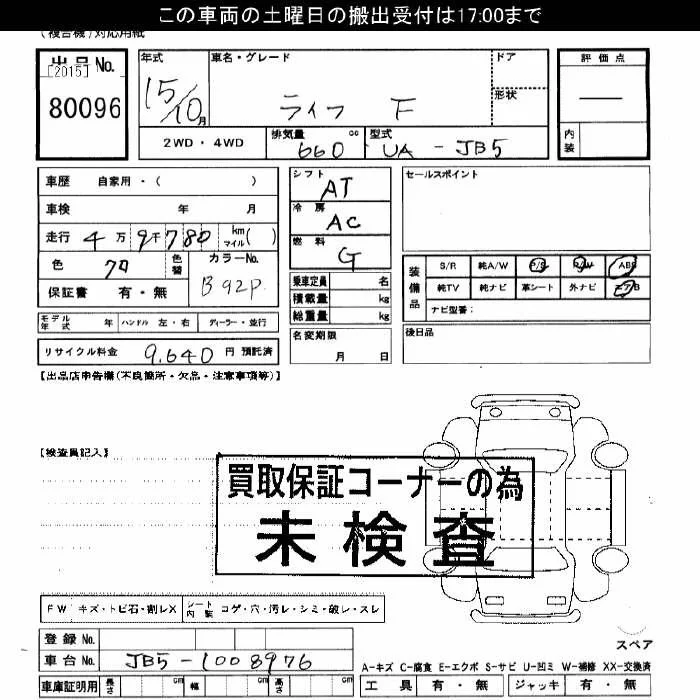 この車両の土曜日の搬出受付は17:00まで
(複合機)対応用紙
出品No. [2015] 80096
年式 15/10月
車名・グレード ライフ F
ドア
形状
評価点 ―
内装
2WD・4WD
排気量 660 cc
型式 UA - JB5
車歴 自家用・( )
車検 年 月
走行 4万9千780 km マイル( )
色 クロ 色替
カラーNo. B92P
保証書 有・無
シフト AT
冷房 AC
燃料 G
乗車定員 名
積載量 kg
総重量 kg
セールスポイント
装備品
S/R 純A/W P/S P/W ABS
純TV 純ナビ 革シート 外ナビ エアB
ナビ型番:
モデル年式 年 ハンドル 左・右 ディーラー・並行
リサイクル料金 9,640 円 預託済
名変期限 月 日
後日品
【出品店申告欄(不良箇所・欠品・注意事項等)】
【検査員記入】
買取保証コーナーの為
未検査
FW キズ・トビ石・割レX
シート内装 コゲ・穴・汚レ・シミ・破レ・スレ
登録No.
車台No. JB5-1008976
車庫証明用 長さ cm 幅 cm 高さ cm
スペア
A-キズ C-腐食 E-エクボ S-サビ U-凹ミ W-補修 XX-交換済
工具 有・無 ジャッキ 有・無